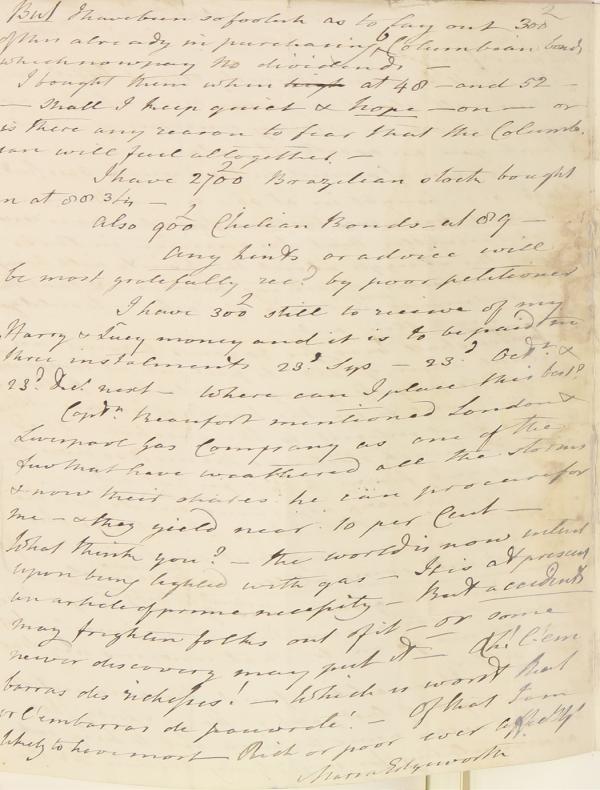 But I have been so foolish as to lay out 300£
of this already in purchasing Columbian bonds
which now pay no dividends –
I bought them when high at 48 – and 52 –
– Shall I keep quiet & hope – on – or
is there any reason to fear that the Columb-
ian will fail altogether. –
I have 2700£ Brazilian stock bought
in at 88 3/4 –
also 900£ Chilian Bonds – at 89 –
Any hints or advice will
be most gratefully recd. by poor petitioner
I have 300£ still to receive of my
Harry & Lucy money and it is to be paid in
three instalments 23d. Sep – 23d. Octr. &
23d. Decr. next – Where can I place this best?
Captn. Beaufort mentioned London &
Liverpool Gas Company as one of the
few that have weathered all the storms
& now their shares he can procure for
me – & they yield near 10 per Cent –
What think you? – the world is now intent
upon being lighted with gas – It is at present
an article of prime necessity – But accidents
may frighten folks out of it – or some
newer discovery may put it – Oh! l'em
barras des richesses! – Which is worst that
or l'embarras de pauvreté! – Of that I am
likely to have most Rich or poor ever affectly
Maria Edgeworth